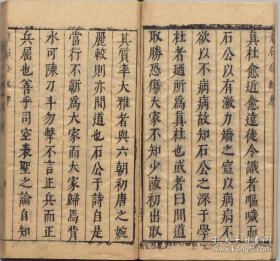 真杜愈近愈遠徒令識者嘔噦而
石公以有激力矯之宣以病病不
以不病病故知石公之深于學
杜者適所為真杜也或者曰間道
取勝恐傷大家不知少陵初出取
其質奉大雅者與六朝初唐之婉
麗較則亦間道也石公于詩自是
當行不蘄為大家而大家歸焉背
水可陳刀斗勿擊不言正兵而正
兵屈也善乎司空表聖之論自知